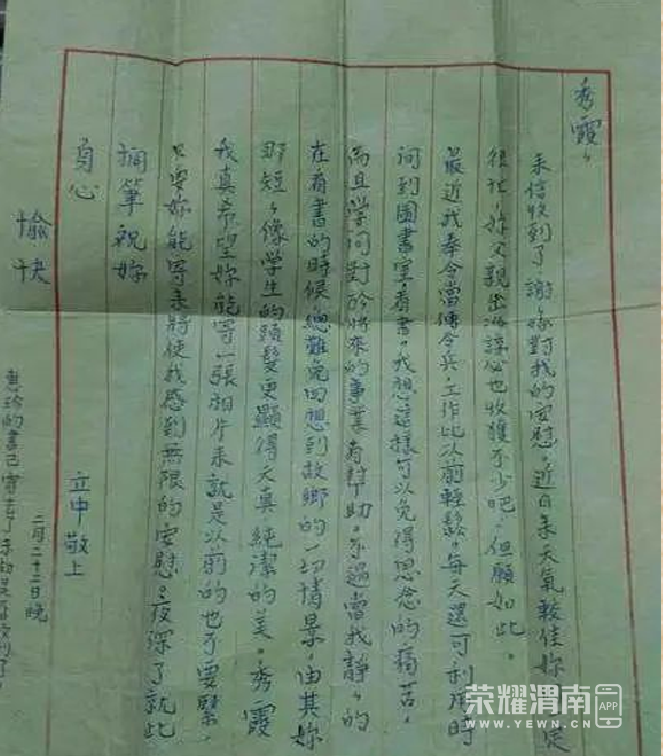 秀霞，
来信收到了谢々妳对我的安慰。近日来天气較佳妳
妳又親出
最近我奉令当傳令兵工作比以前輕鬆，每天還可利用時
间到圖書室看書，我想這樣可以免得思念的痛苦，
而且学问對於将來的事業有幫助。不過當我静々的
在看書的時候總難免回想到故鄉的一切情景，由其妳
那短，像学生的頭髮更顯得天真純潔的美。秀霞
我真希望妳能寄一張相片来就是以前的也不要緊，
只要妳能寄来將使我感到無限的安慰。夜深了就此
擱筆祝妳
身心
愉快
立中敬上
二月二十二日晚
的書已寄去了
荣耀渭南 APP
WWW.YEWN.CN